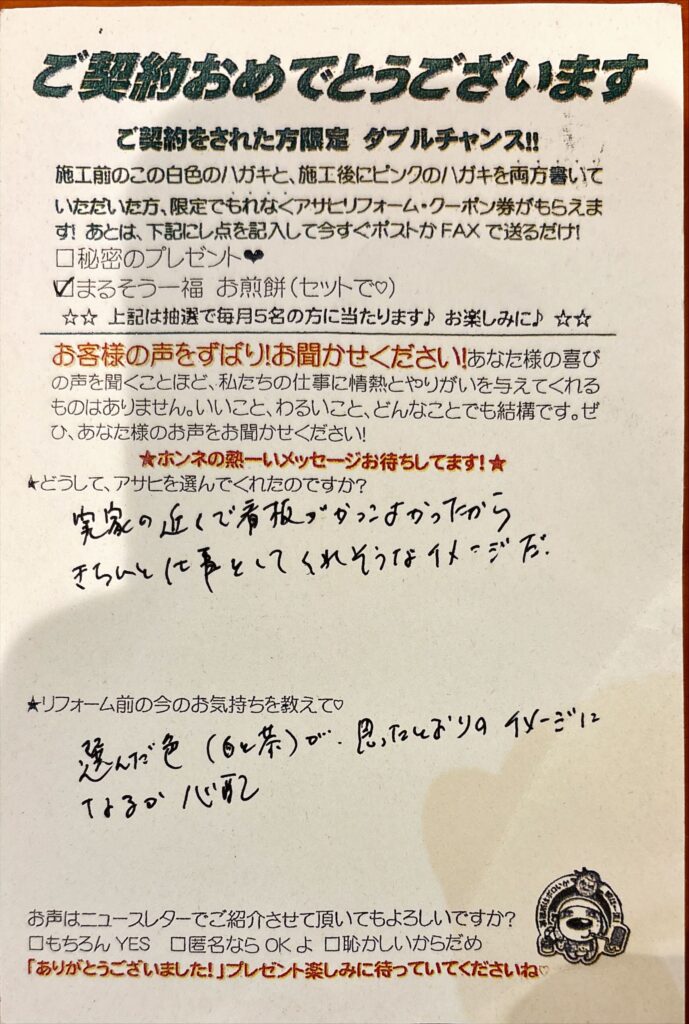 ご契約おめでとうございます
ご契約をされた方限定 ダブルチャンス!!
施工前のこの白色のハガキと、施工後にピンクのハガキを両方書いて
いただいた方、限定でもれなくアサヒリフォーム・クーポン券がもらえま
す! あとは、下記にレ点を記入して今すぐポストかFAXで送るだけ!
□秘密のプレゼント♥
☑まるそう一福 お煎餅(セットで♡)
☆☆ 上記は抽選で毎月5名の方に当たります♪ お楽しみに♪ ☆☆
お客様の声をずばり!お聞かせください!あなた様の喜び
の声を聞くことほど、私たちの仕事に情熱とやりがいを与えてくれる
ものはありません。いいこと、わるいこと、どんなことでも結構です。ぜ
ひ、あなた様のお声をお聞かせください!
★ホンネの熱ーいメッセージお待ちしてます!★
★どうして、アサヒを選んでくれたのですか?
実家の近くで看板がかっこよかったから
きちんと仕事をしてくれそうなイメージだ.
★リフォーム前の今のお気持ちを教えて♡
選んだ色(白と茶)が、思ったとおりのイメージに
なるか心配
お声はニュースレターでご紹介させて頂いてもよろしいですか?
□もちろんYES □匿名ならOKよ □恥かしいからだめ
「ありがとうございました!」プレゼント楽しみに待っていてくださいね♡